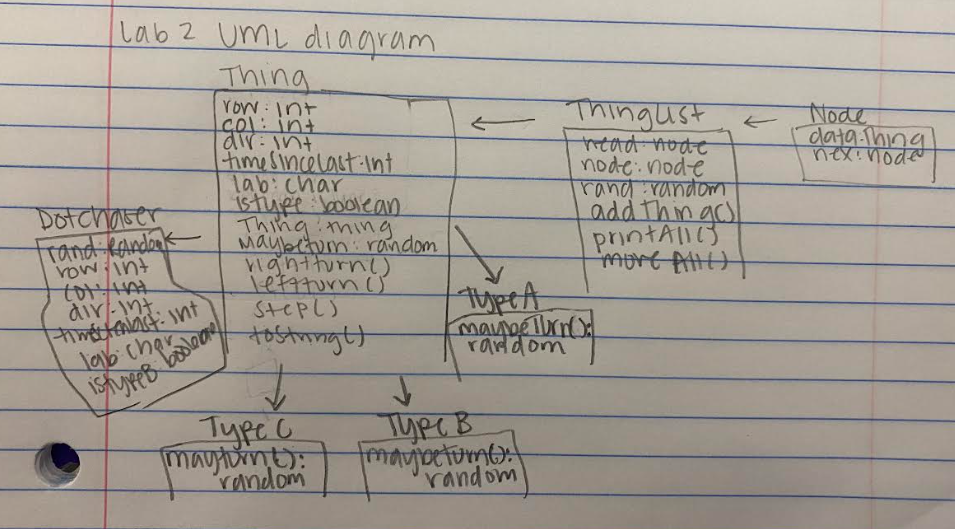 Lab 2 UML diagram
Thing
row: int
col: int
dir: int
timeSinceLast: int
lab: char
istype: boolean
Thing: thing
Maybeturn: random
rightturn()
leftturn()
step()
toString()
ThingList
head: node
node: node
rand: random
addThing()
printAll()
move All()
Node
data: Thing
nex: node
DotChaser
rand: Random
row: int
col: int
dir: int
lab: char
istypeB: boolean
Type A
maybeTurn():
random
Type C
mayturn():
random
Type B
maybeturn():
random